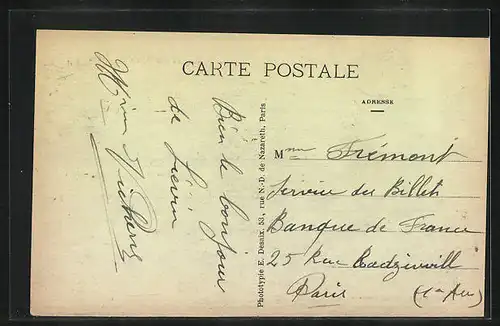 CARTE POSTALE
Bien le bonjour
de Liévin
Phototypie E. Desaix, 53, rue N.-D. de Nazareth, Paris
ADRESSE
Mme Frémont
Service des Billets
Banque de France
25 Rue Radziwill
Paris (1er Arr)